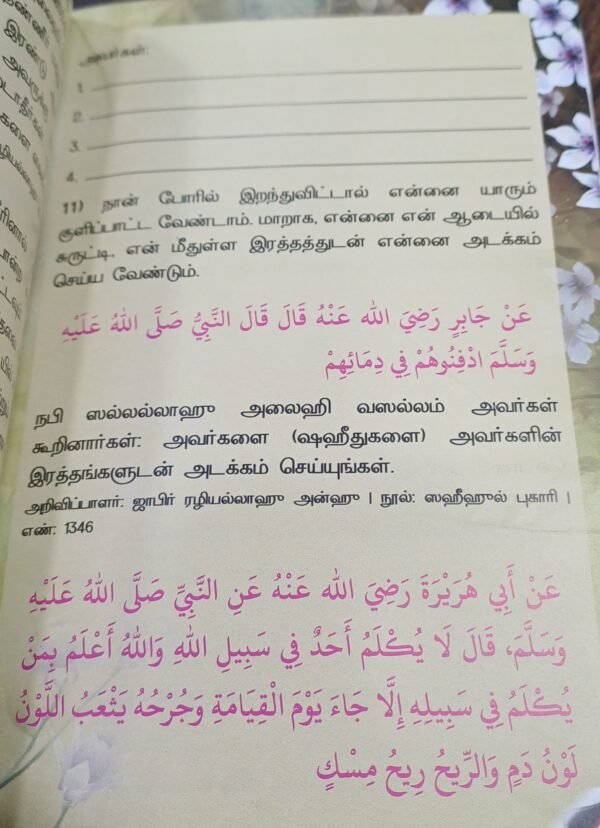 அவர்கள்:
1.
2.
3.
4.
11) நான் போரில் இறந்துவிட்டால் என்னை யாரும்
குளிப்பாட்ட வேண்டாம். மாறாக, என்னை என் ஆடையில்
சுருட்டி, என் மீதுள்ள இரத்தத்துடன் என்னை அடக்கம்
செய்ய வேண்டும்.
عَنْ جَابِرٍ رَضِيَ الله عَنْهُ قَالَ قَالَ النَّبِيُّ صَلَّى اللهُ عَلَيْهِ
وَسَلَّمَ ادْفِنُوهُمْ فِي دِمَائِهِمْ
நபி ஸல்லல்லாஹு அலைஹி வஸல்லம் அவர்கள்
கூறினார்கள்: அவர்களை (ஷஹீதுகளை) அவர்களின்
இரத்தங்களுடன் அடக்கம் செய்யுங்கள்.
அறிவிப்பாளர்: ஜாபிர் ரழியல்லாஹு அன்ஹு | நூல்: ஸஹீஹுல் புகாரி |
எண்: 1346
عَنْ أَبِي هُرَيْرَةَ رَضِيَ الله عَنْهُ عَنِ النَّبِيِّ صَلَّى اللهُ عَلَيْهِ
وَسَلَّمَ، قَالَ لَا يُكْلَمُ أَحَدٌ فِي سَبِيلِ اللهِ وَاللهُ أَعْلَمُ بِمَنْ
يُكْلَمُ فِي سَبِيلِهِ إِلَّا جَاءَ يَوْمَ الْقِيَامَةِ وَجُرْحُهُ يَثْعَبُ اللَّوْنُ
لَوْنُ دَمٍ وَالرِّيحُ رِيحُ مِسْكٍ